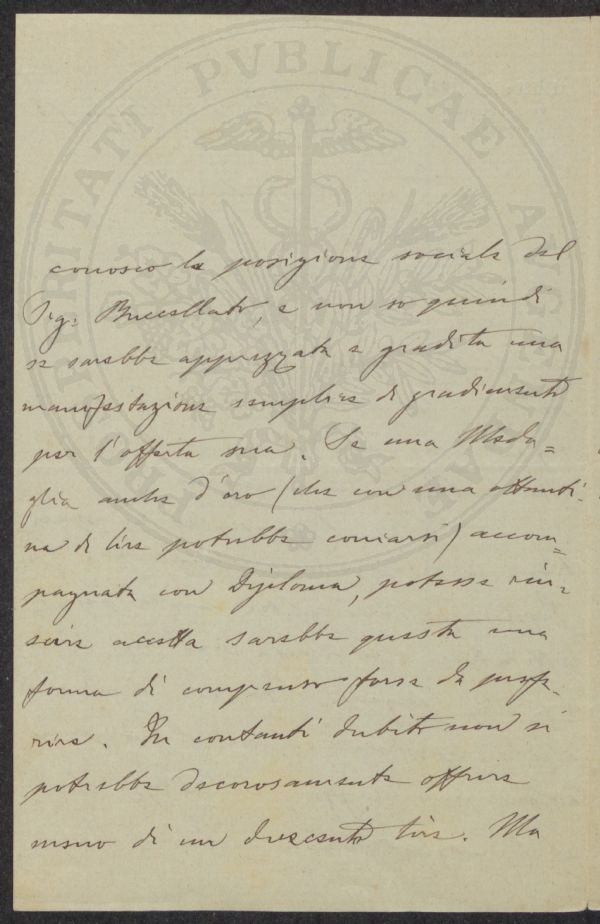 PROSPERITATI PVBLICAE AVGENDAE
conosco la posizione sociale del
Sig. Buccellato, e non so quindi
se sarebbe apprezzata e gradita una
manifestazione semplice di gradimento
per l'offerta sua. Se una Meda=
glia anche d'oro (che con una ottanti-
na di lire potrebbe coniarsi) accom=
pagnata con Diploma, potesse riu=
scire accetta sarebbe questa una
forma di compenso forse da prefe-
rire. In contanti dubito non si
potrebbe decorosamente offrire
meno di un duecento lire. Ma